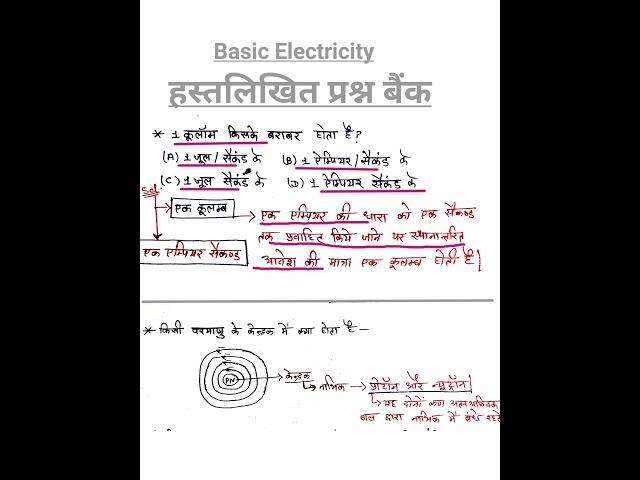 Basic Electricity
हस्तलिखित प्रश्न बैंक
* 1 कूलॉम किसके बराबर होता है?
(A) 1 जूल / सैकंड के (B) 1 ऐम्पियर / सैकंड के
(C) 1 जूल सैकंड के (D) 1 ऐम्पियर सैकंड के
Sol.
एक कूलम्ब → एक एम्पियर की धारा को एक सैकण्ड
तक प्रवाहित किये जाने पर स्थानान्तरित
एक एम्पियर सैकण्ड आवेश की मात्रा एक कूलम्ब होती है|
* किसी परमाणु के केन्द्रक में क्या होता है —
PN → केन्द्रक
नाभिक → प्रोटॉन और न्यूट्रॉन|
यह दोनों कण
बल द्वारा नाभिक में बंधे रहते